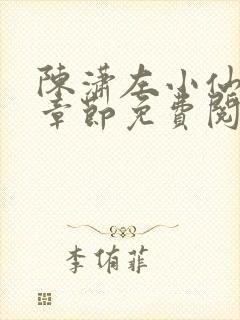 陳瀟左小仙
章節免費閱
李侑菲